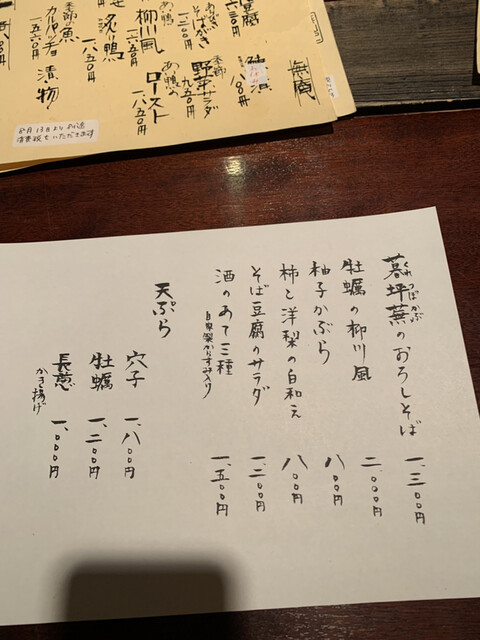 暮坪蕪のおろしそば 一、三〇〇円
くれつぼかぶ
牡蠣の柳川風 二、〇〇〇円
柚子かぶら 八〇〇円
柿と洋梨の白和え 八〇〇円
そば豆腐のサラダ 一、二〇〇円
酒のあて三種 一、五〇〇円
自家製からすみ入り
天ぷら
穴子 一、八〇〇円
牡蠣 一、二〇〇円
長葱 一、〇〇〇円
かき揚げ
季節
野菜サラダ
九五〇円
そばがき
柳川風
一、六五〇円
ロースト
一、八五〇円
季節の魚
カルパッチョ
一、五六〇円
漬物